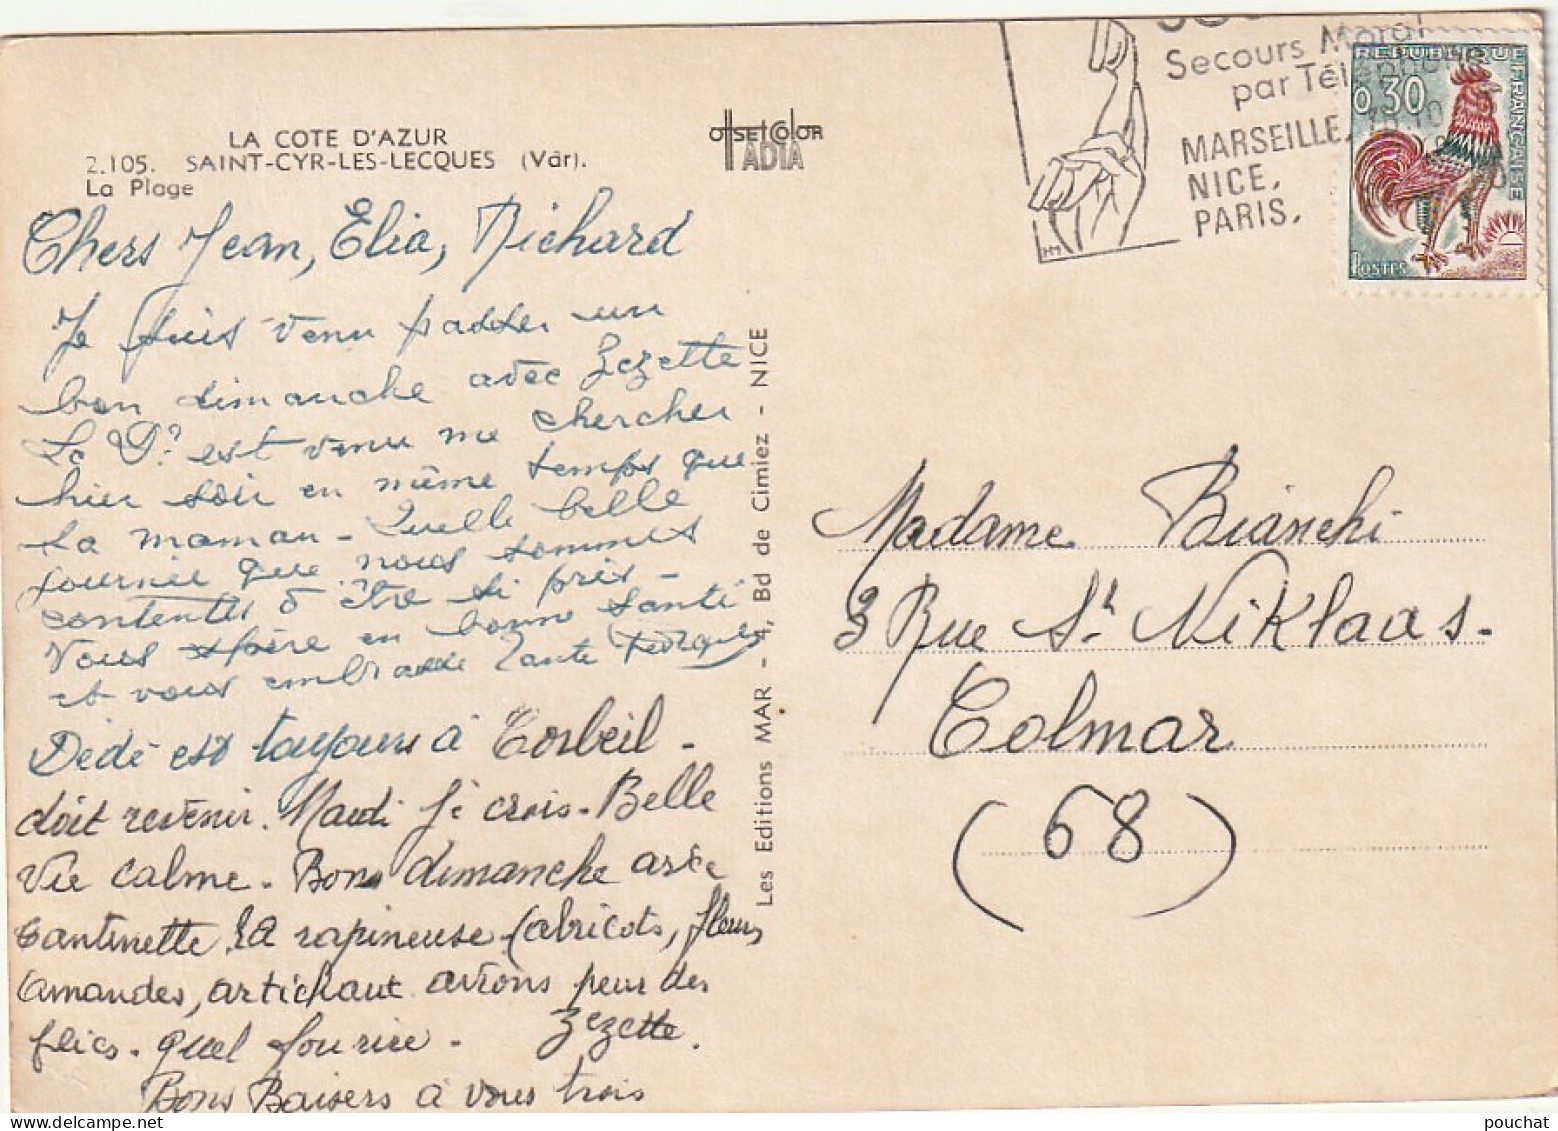 LA COTE D'AZUR
2.105. SAINT-CYR-LES-LECQUES (Var).
La Plage
OFFSETCOLOR
ADIA
Secours Moral
par Télé
MARSEILLE,
NICE,
PARIS.
REPUBLIQUE FRANÇAISE
0,30
POSTES
Chers Jean, Elia, Richard
Je suis venu passer un
bon dimanche avec Zezette
Le Dr est venu me chercher
hier soir en même temps que
sa maman - Quelle belle
journée que nous sommes
contentes d'être si près -
Vous espère en bonne santé
et vous embrasse Tante
Dédé est toujours à Corbeil -
doit revenir. Mardi je crois - Belle
vie calme. Bons dimanche avec
tantinette la rapineuse (abricots, fleurs
amandes, artichaut avions peur des
flics. quel fou rire - Zezette.
Bons Baisers à vous trois
Les Editions MAR - 4, Bd de Cimiez - NICE
Madame Bianchi
3 Rue St Niklaas.
Colmar
(68)
pouchat